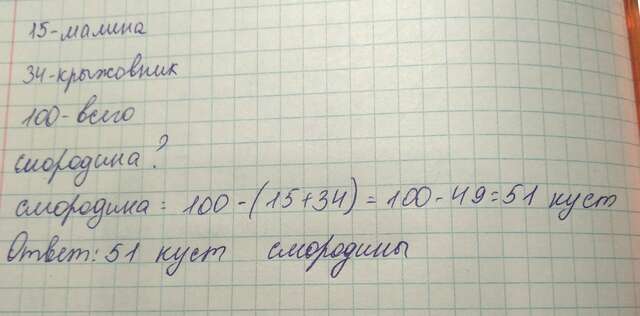 15-малина
34-крыжовник
100-всего
смородина?
смородина = 100-(15+34)=100-49=51 куст
Ответ: 51 куст смородины